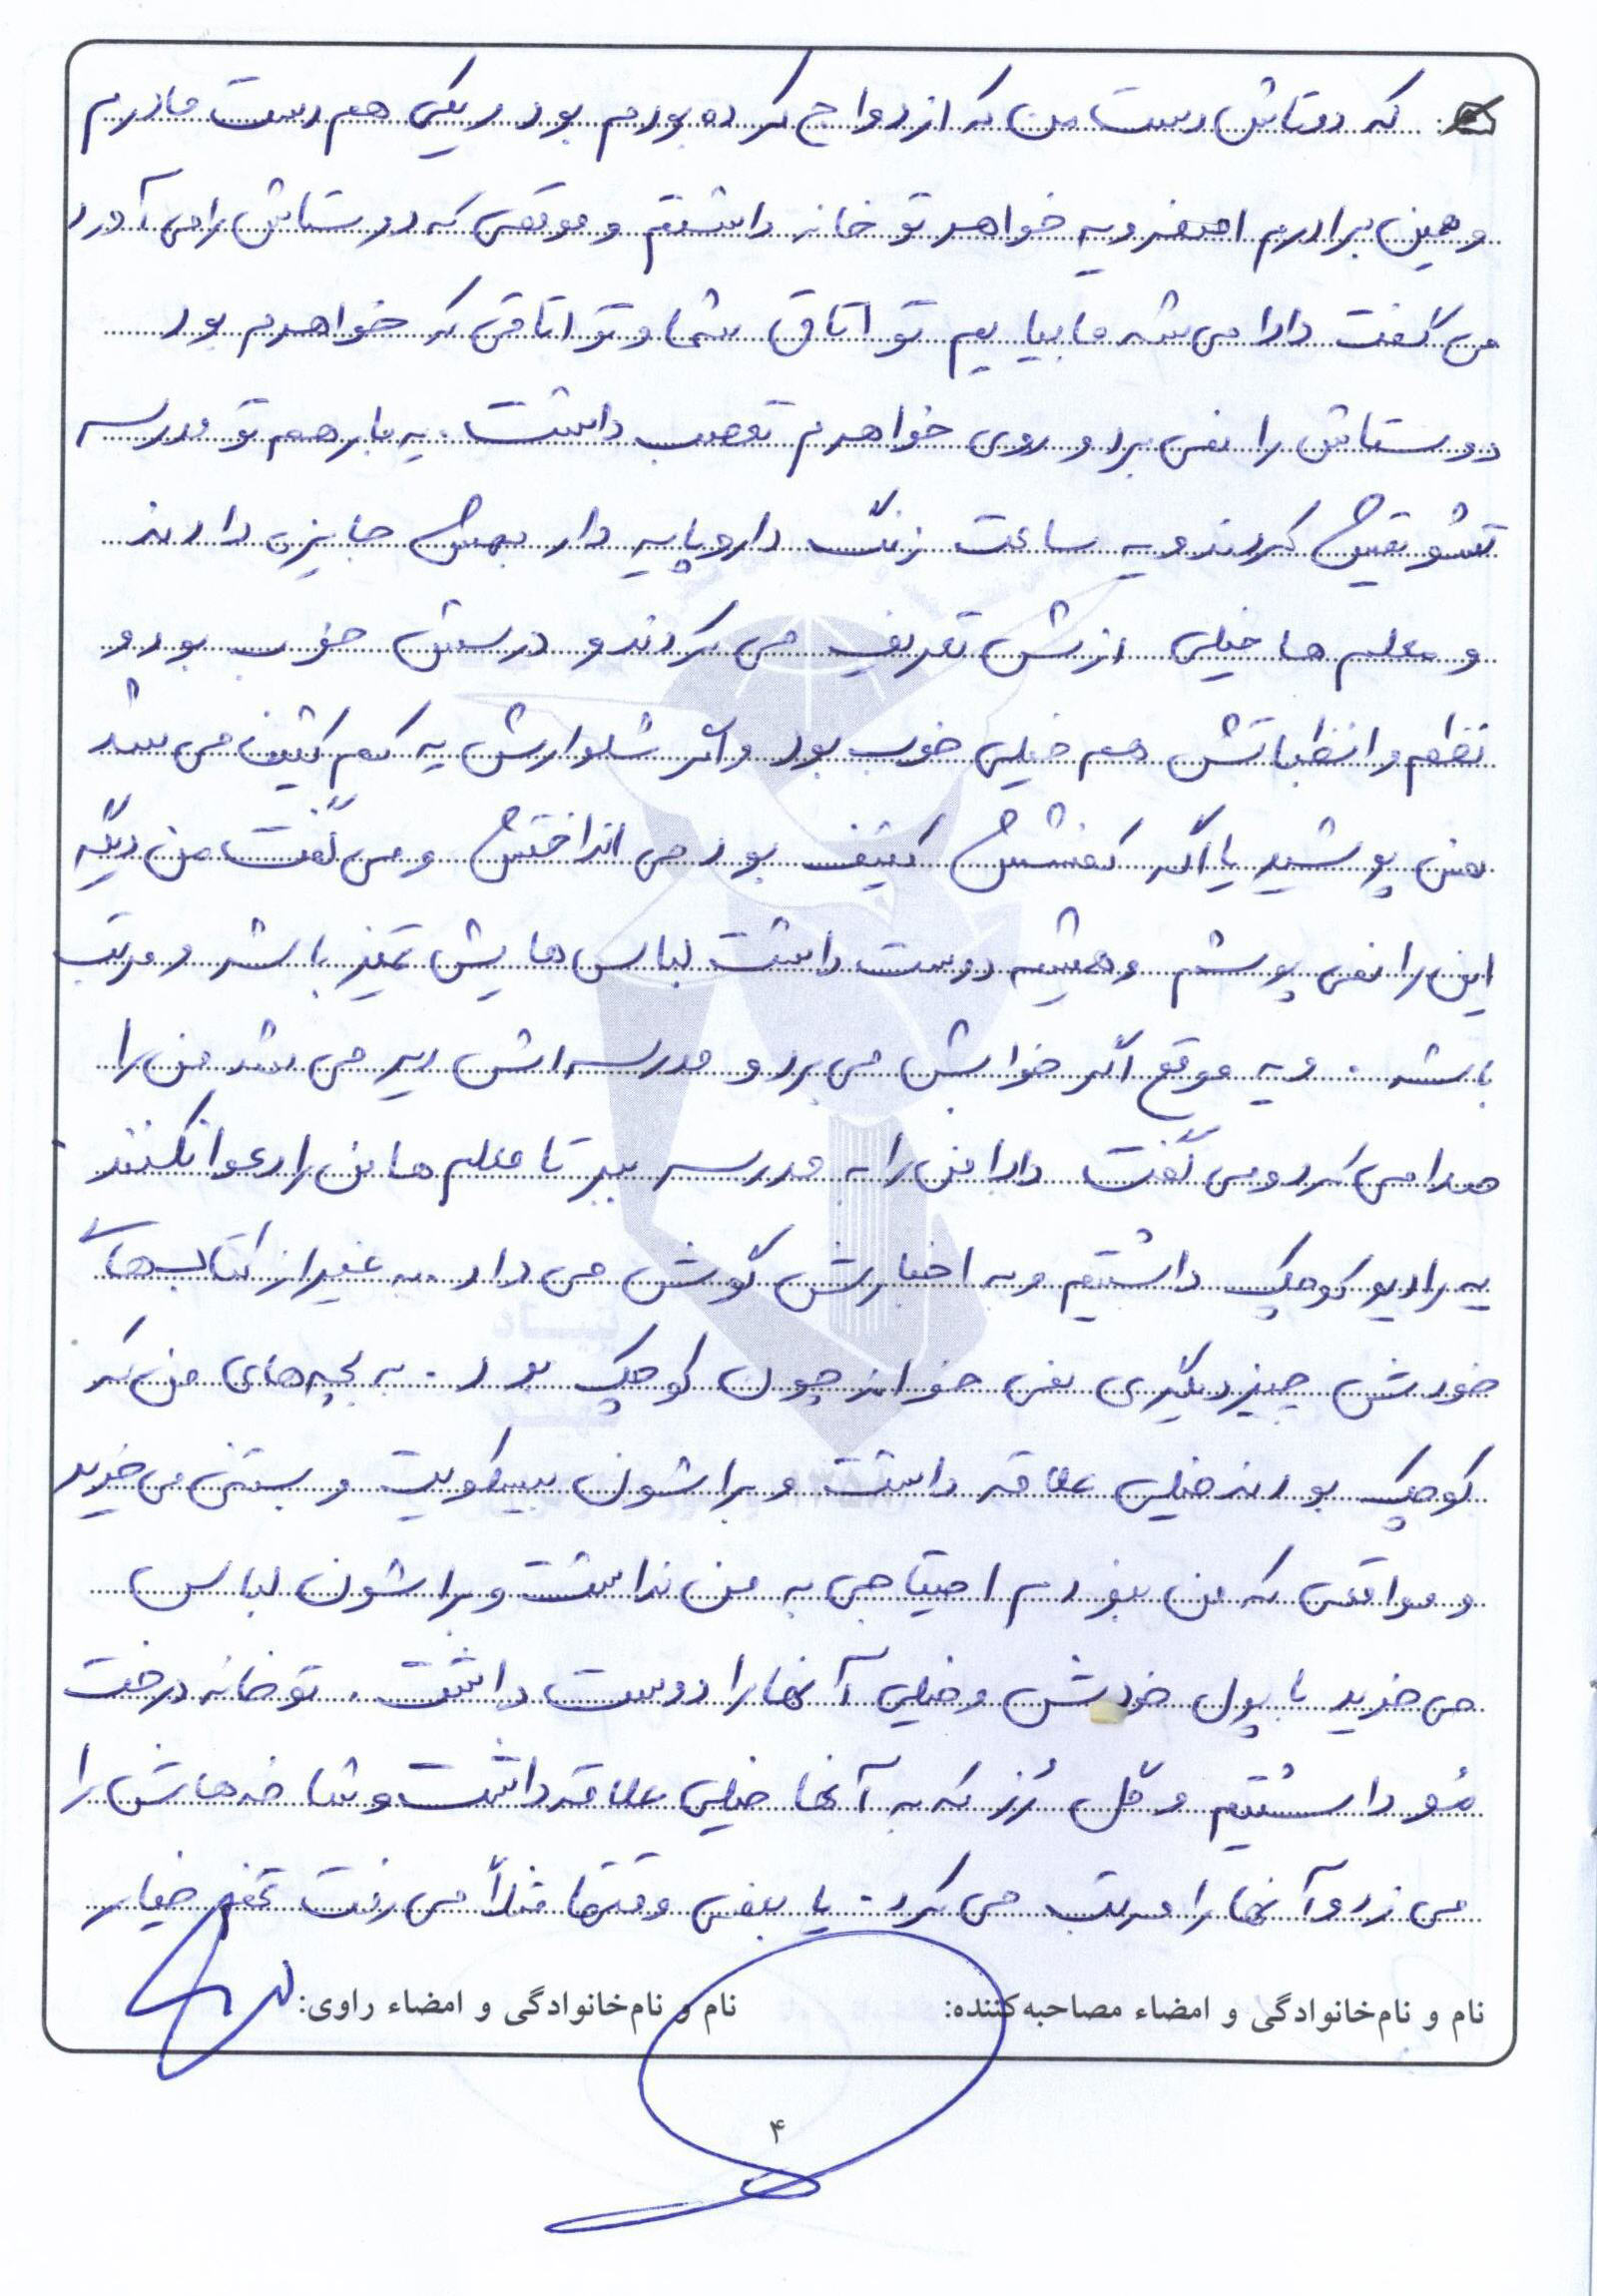 که دوتاش دست من که ازدواج کرده بودم بود و یکی هم دست مادرم
و همین برادرم اصغر و یه خواهر تو خانه داشتم و موقعی که دوستاش را می آورد
می گفت دادا می شه ما بیاییم تو اتاق شما و تو اتاقی که خواهرم بود
دوستاش را نمی برد و روی خواهرم تعصب داشت. یه بار هم تو مدرسه
تشویقش کردند و یه ساعت زنگ دار و پایه دار بهش جایزه دادند
و معلم ها خیلی ازش تعریف می کردند و درسش خوب بود و
نظم و انظباتش هم خیلی خوب بود و اگر شلوارش یه کم کثیف می شد
نمی پوشید یا اگر کفشش کثیف بود می انداختش و می گفت من دیگه
این را نمی پوشم و همیشه دوست داشت لباس هایش تمیز باشد و مرتب
باشد. و یه موقع اگر خوابش می برد و مدرسه اش دیر می شد من را
صدا می کرد و می گفت دادا من را به مدرسه ببر تا معلم ها من را دعوا نکنند
یه رادیو کوچک داشتیم و به اخبارش گوش می داد. به غیر از کتاب های
خودش چیز دیگری نمی خواند چون کوچک بود. به بچه های من که
کوچک بودند خیلی علاقه داشت و براشون بیسکویت و بستنی می خرید
و مواقعی که من نبودم احتیاجی به من نداشت و براشون لباس
می خرید با پول خودش و خیلی آنها را دوست داشت. تو خانه درخت
مُو داشتیم و گل رُز که به آنها خیلی علاقه داشت و شاخه هاش را
می زد و آنها را مرتب می کرد. یا بعضی وقتها مثلاً می رفت تخم خیار
نام و نام‌خانوادگی و امضاء مصاحبه‌کننده: نام و نام‌خانوادگی و امضاء راوی:
۴